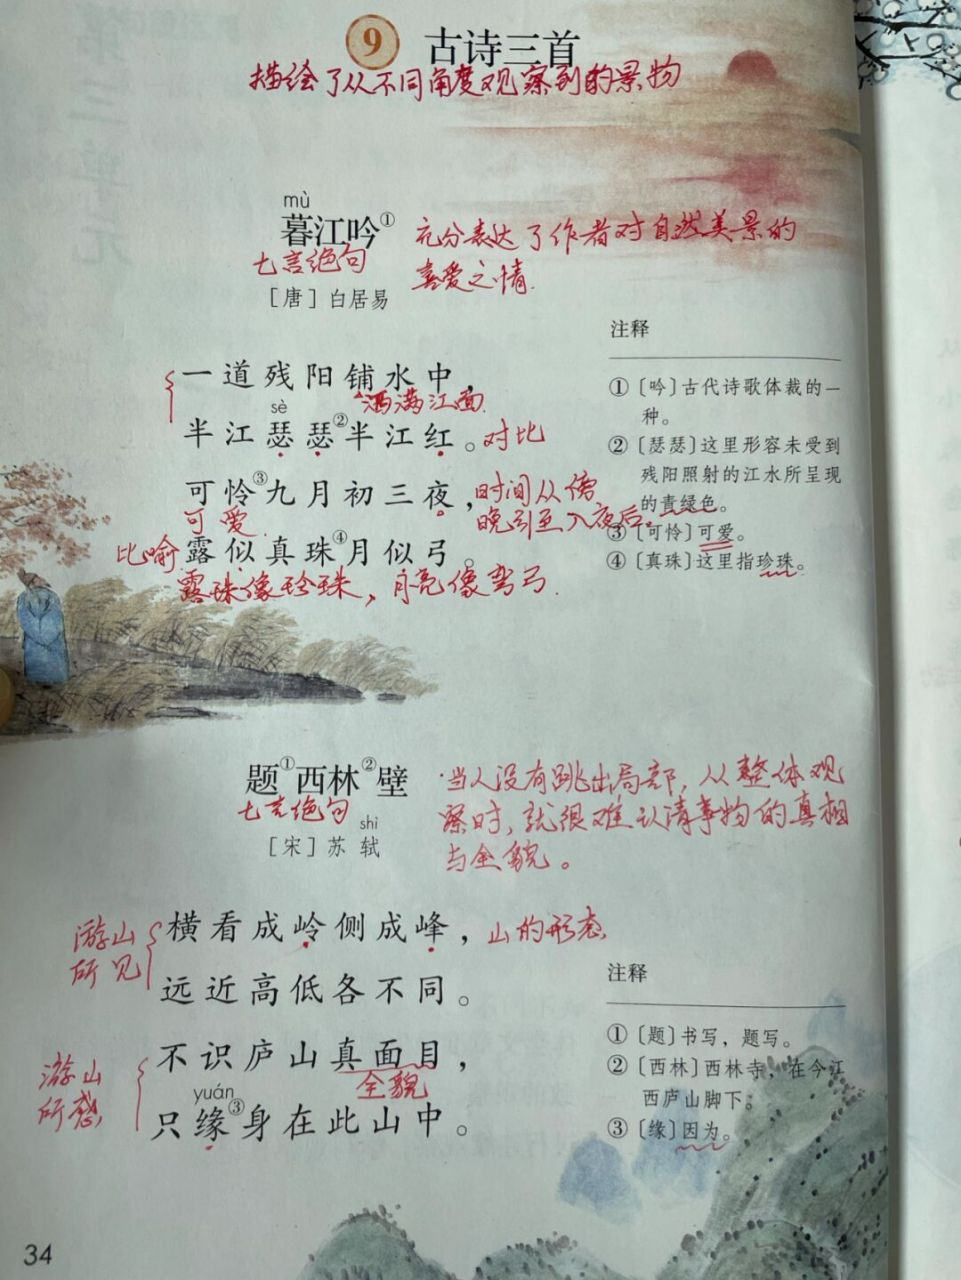 9 古诗三首
描绘了从不同角度观察到的景物
mù
暮江吟①
七言绝句
[唐] 白居易
充分表达了作者对自然美景的
喜爱之情.
一道残阳铺水中，
洒满江面.
sè
半江瑟瑟②半江红。对比
可怜③九月初三夜，
可爱
时间从傍
晚到入夜后.
比喻 露似真珠④月似弓。
露珠像珍珠，月亮像弯弓.
注释
①〔吟〕古代诗歌体裁的一
种。
②〔瑟瑟〕这里形容未受到
残阳照射的江水所呈现
的青绿色。
③〔可怜〕可爱。
④〔真珠〕这里指珍珠。
题①西林②壁
七言绝句
shì
[宋] 苏 轼
当人没有跳出局部，从整体观
察时，就很难认清事物的真相
与全貌。
游山
所见
横看成岭侧成峰，山的形态
远近高低各不同。
游山
所感
不识庐山真面目，
全貌
yuán
只缘③身在此山中。
注释
①〔题〕书写，题写。
②〔西林〕西林寺，在今江
西庐山脚下。
③〔缘〕因为。
34